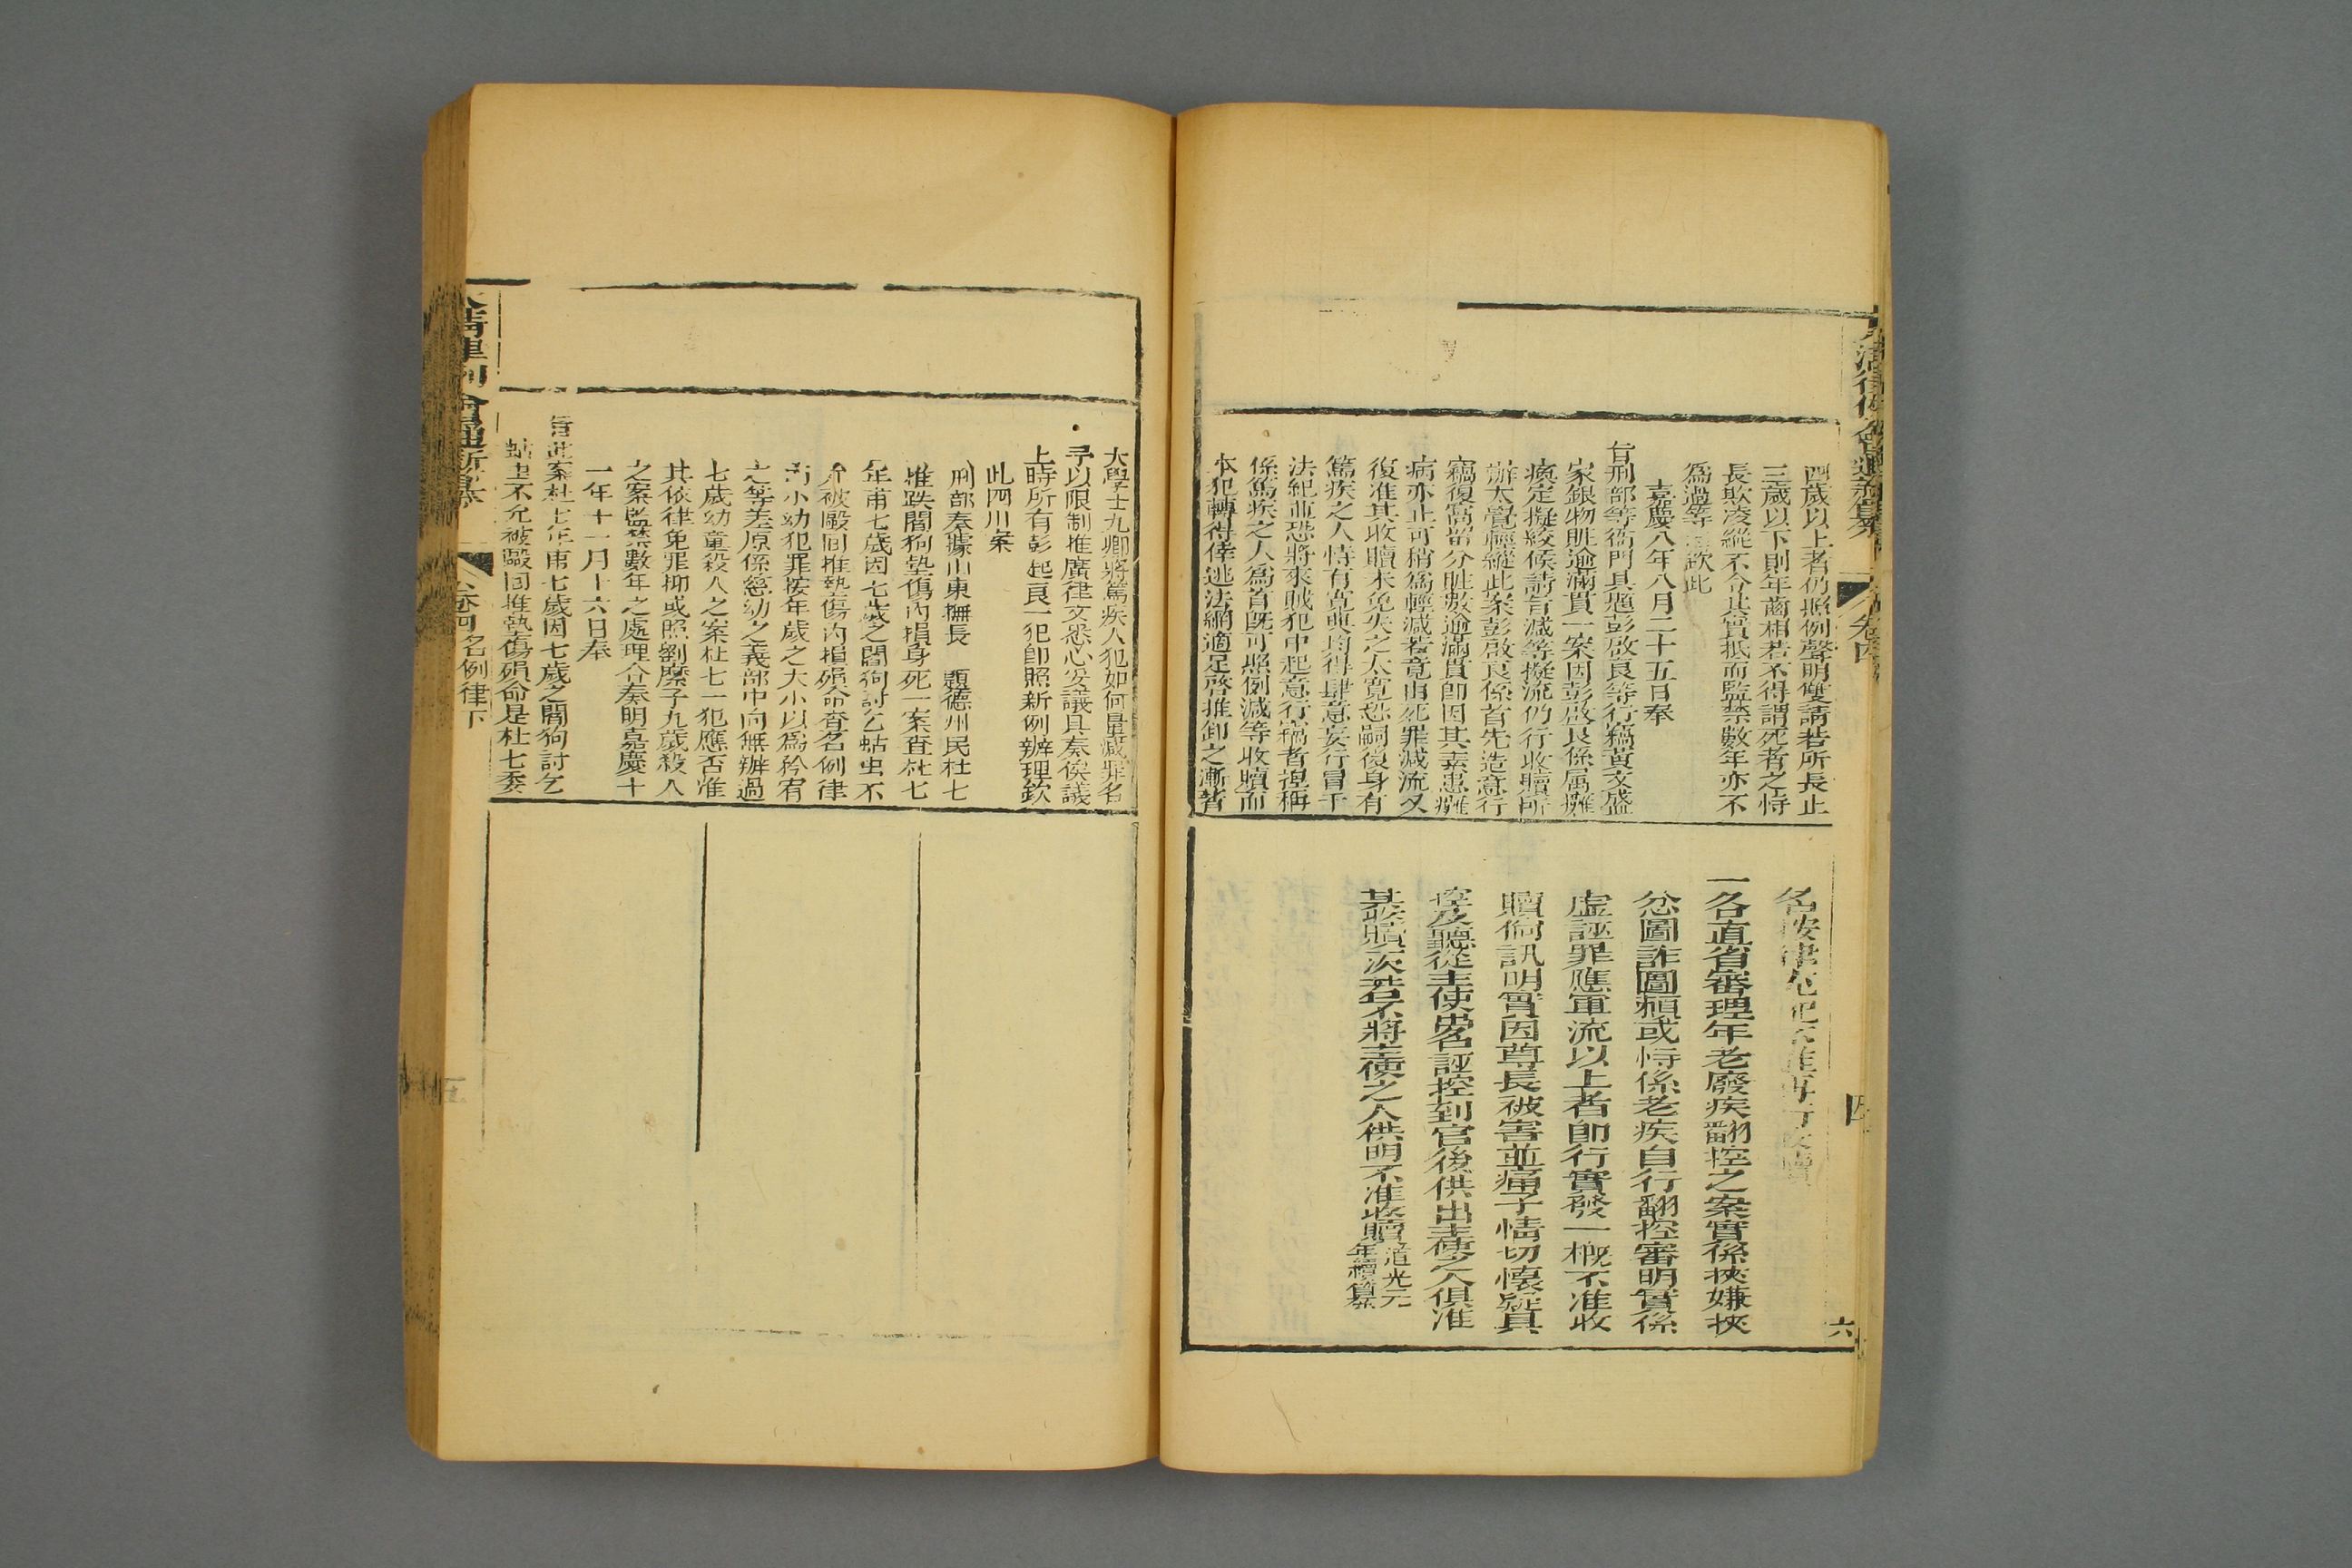 四歲以上者仍照例聲明雙請若所長止
三歲以下則年齒相若不得謂死者之恃
長欺凌縱不令其實抵而監禁數年亦不
為過等 欽此
嘉慶八年八月二十五日奉
旨刑部等衙門具題彭啟良等行竊黃文盛
家銀物贓逾滿貫一案因彭啟良係屬癱
瘓定擬絞候請旨減等擬流仍行收贖所
辦太覺輕縱此案彭啟良係首先造意行
竊復窩留分贓數逾滿貫即因其素患癱
病亦止可稍為輕減若竟由死罪減流又
復准其收贖未免失之太寬恐嗣後身有
篤疾之人恃有寬典均得肆意妄行冒干
法紀並恐將來賊犯中起意行竊者捏稱
係篤疾之人為首既可照例減等收贖而
本犯轉得倖逃法網適足啓推卸之漸著
名按律
一各直省審理年老廢疾翻控之案實係挾嫌挾
忿圖詐圖賴或恃係老疾自行翻控審明實係
虛誣罪應軍流以上者即行實發一概不准收
贖倘訊明實因尊長被害並痛子情切懷疑具
控及聽從主使出名誣控到官後供出主使之人俱准
其收贖一次若不將主使之人供明不准收贖道光元
年續纂
六
大學士九卿將篤疾人犯如何量減罪名
予以限制推廣律文悉心妥議具奏候議
上時所有彭起良一犯即照新例辦理欽
此四川案
刑部奏據山東撫長 題德州民杜七
推跌閻狗墊傷內損身死一案查杜七
年甫七歲因七歲之閻狗討乞蛣虫不
允被毆回推墊傷內損殞命查名例律
內小幼犯罪按年歲之大小以為矜宥
之等差原係慈幼之義部中向無辦過
七歲幼童殺人之案杜七一犯應否准
其依律免罪抑或照劉縻子九歲殺人
之案監禁數年之處理合奏明嘉慶十
一年十一月十六日奉
旨此案杜七年甫七歲因七歲之閻狗討乞
蛣虫不允被毆回推墊傷殞命是杜七委
名例律下
五